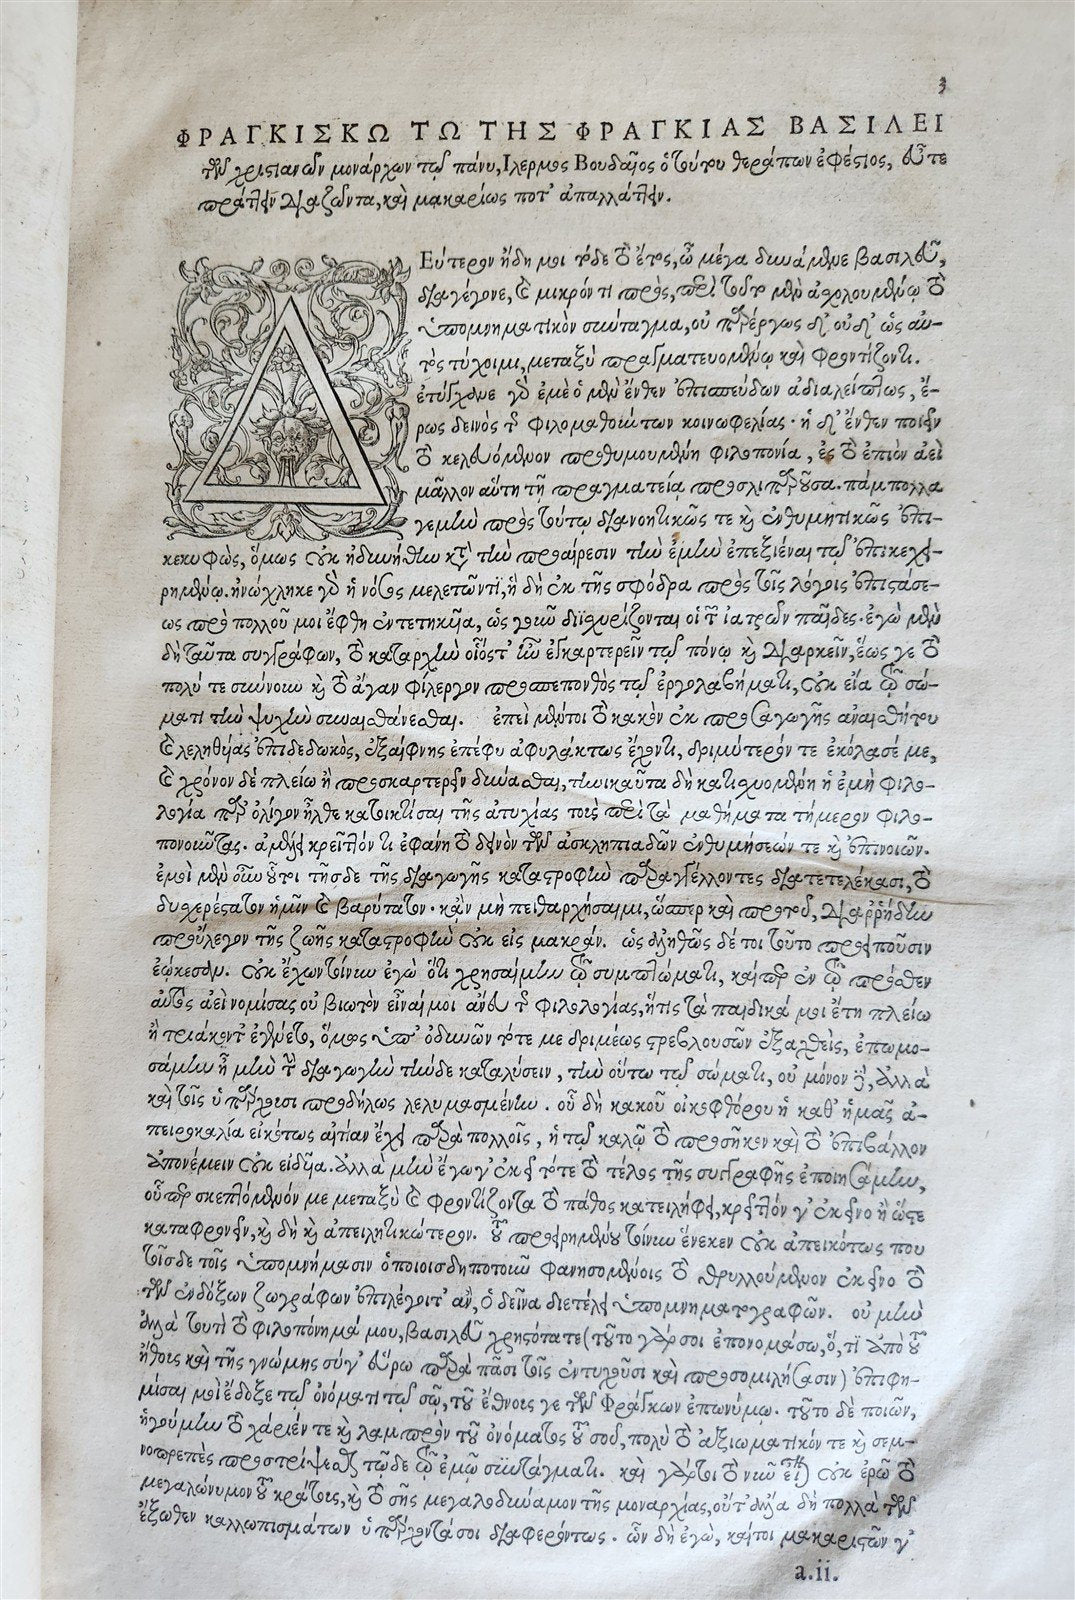 3
ΦΡΑΓΚΙΣΚΩ ΤΩ ΤΗΣ ΦΡΑΓΚΙΑΣ ΒΑΣΙΛΕΙ
τῶν χριστιανῶν μονάρχων τῷ πάνυ, Ιλερμος Βουδαῖος ὁ τούτου θεράπων ἐφέστιος, εὖ τε
πράττειν διαζῶντα, καὶ μακαρίως ποτ' ἀπαλλάττειν.
ΔΕύτερον ἤδη μοι τόδε τὸ ἔτος, ὦ μέγα δυνάμενε βασιλεῦ,
διαγέγονε, καὶ μικρόν τι πρὸς, περὶ τοῦτο μὲν ἀσχολουμένῳ τὸ
ὑπομνηματικὸν σύνταγμα, οὐ παρέργως δ' οὐδ' ὡς ἀυ-
τὸς τύχοιμι, μεταξὺ πραγματευομένῳ καὶ φροντίζοντι.
γὰρ ἐμὲ ὁ μὲν ἔνθεν ἐπισπεύδων ἀδιαλείπτως, ἔ-
ρως δεινὸς τῆς φιλομαθούντων κοινωφελίας· ἡ δ' ἔνθεν ποιεῖν
τὸ κελευόμενον προθυμουμένη φιλοπονία, ἐς τὸ ἐπιὸν ἀεὶ
μᾶλλον αὕτη τῇ πραγματείᾳ προσλιπαροῦσα. πάμπολλα
γε μὴν πρὸς τούτῳ διανοητικῶς τε καὶ ἐνθυμητικῶς ἐπι-
κεκυφὼς, ὅμως οὐκ ἠδυνήθην κατὰ τὴν προαίρεσιν τὴν ἐμὴν ἐπεξιέναι τῷ ἐπικεχει-
ρημένῳ. ἠνώχληκε γὰρ ἡ νόσος μελετῶντι, ἣ δὴ ἐκ τῆς σφόδρα πρὸς τοῖς λόγοις ἐπιστάσε-
ως πρὸ πολλοῦ μοι ἔφθη ἐντετηκυῖα, ὡς γοῦν διϊσχυρίζονται οἱ τῶν ἰατρῶν παῖδες. ἐγὼ μὲν
δὴ ταῦτα συγγράφων, τὸ καταρχὴν οἷός τ' ἦν ἐγκαρτερεῖν τῷ πόνῳ καὶ διαρκεῖν, ἕως γε τὸ
πολύ τε σύνουν καὶ τὸ ἄγαν φίλεργον προσπεπονθὸς τῷ ἐργολαβήματι, οὐκ εἴα τῷ σώ-
ματι τὴν ψυχὴν συναισθάνεσθαι. ἐπεὶ μέντοι τὸ κακὸν ἐκ προσαγωγῆς ἀναισθήτου
καὶ λεληθυίας ἐπιδεδωκὸς, ἐξαίφνης ἐπέφυ ἀφυλάκτως ἔχοντι, δριμύτερόν τε ἐκόλασέ με,
καὶ χρόνον δὲ πλείω ἢ προσκαρτερεῖν δύνασθαι, τηνικαῦτα δὴ κατισχομένη ἡ ἐμὴ φιλο-
λογία παρ' ὀλίγον ἦλθε κατοικτίσαι τῆς ἀτυχίας τοὺς περὶ τὰ μαθήματα τήμερον φιλο-
πονοῦντας. ἀμέλει κρεῖττόν τι ἐφάνη τὸ δεινὸν τῶν ἀσκληπιαδῶν ἐνθυμήσεών τε καὶ ἐπινοιῶν.
ἐμοὶ μὲν οὖν οὗτοι τῆσδε τῆς διαγωγῆς καταστροφὴν παραγγέλλοντες διατετελέκασι, τὸ
δυσχερέστατον ἡμῖν καὶ βαρύτατον· κἂν μὴ πειθαρχήσαιμι, ὥσπερ καὶ πρὸ τοῦ, διαρρήδην
προὔλεγον τῆς ζωῆς καταστροφὴν οὐκ εἰς μακράν. ὡς ἀληθῶς δέ τοι τοῦτο προειποῦσιν
ἐῴκεσαν. οὐκ ἔχων τοίνυν ἐγὼ ὅ τι χρησαίμην τῷ συμπτώματι, καίπερ ἐν τῷ πρόσθεν
αὐτὸς ἀεὶ νομίσας οὐ βιωτὸν εἶναί μοι ἄνευ τῆς φιλολογίας, ἥτις τὰ παιδικά μοι ἔτη πλείω
ἢ τριάκοντ' ἐγένετο, ὅμως ὑπ' ὀδυνῶν τότε με δριμέως στρεβλουσῶν ἐξαχθεὶς, ἐπωμο-
σάμην ἦ μὴν τὴν διαγωγὴν τήνδε καταλύσειν, τὴν οὕτω τῷ σώματι, οὐ μόνον δὲ, ἀλλὰ
καὶ τοῖς ὑπάρχουσι προδήλως λελυμασμένην. οὗ δὴ κακοῦ οἰκοφθόρου ἡ καθ' ἡμᾶς ἀ-
πειροκαλία εἰκότως αἰτίαν ἔχει παρὰ πολλοῖς, ἡ τῷ καλῷ τὸ προσῆκον καὶ τὸ ἐπιβάλλον
ἀπονέμειν οὐκ εἰδυῖα. ἀλλὰ μὴν ἔγωγ' ἐκεῖ τότε τὸ τέλος τῆς συγγραφῆς ἐποιησάμην,
οὗπερ σκεπτόμενόν με μεταξὺ καὶ φροντίζοντα τὸ πάθος κατειλήφει, κρεῖττόν γ' ἐκεῖνο ἢ ὥστε
καταφρονεῖν, καὶ δὴ καὶ ἀπειλητικώτερον. τοῦ προειρημένου τοίνυν ἕνεκεν οὐκ ἀπεικότως που
τοῖσδε τοῖς ὑπομνήμασιν ὁποιοισδηποτοῦν φανησομένοις τὸ θρυλλούμενον ἐκεῖνο τὸ
τῶν ἐνδόξων ζωγράφων ἐπιλέγοιτ' ἂν, ὁ δεῖνα διετέλει ὑπομνηματογραφῶν. οὐ μὴν
ἀλλὰ τουτὶ τὸ φιλοπόνημά μου, βασιλεῦ χρηστότατε (τοῦτο γὰρ σοι ἐπονομάσω, ὅ, τι ἀπὸ τοῦ
ἤθους καὶ τῆς γνώμης σύγ' εὕρω παρὰ πᾶσι τοῖς ἐντυχοῦσι καὶ προσομιλήσασιν) ἐπιφη-
μίσαι μοι ἔδοξε τῷ ὀνόματι τῷ σῷ, τοῦ ἔθνους γε τῶν Φράγκων ἐπωνύμῳ. τοῦτο δὲ ποιῶν,
ἡγούμην τὸ χάριέν τε καὶ λαμπρὸν τοῦ ὀνόματος τοῦ σοῦ, πολὺ τὸ ἀξιωματικόν τε καὶ σεμ-
νοπρεπὲς προστρίψεσθαι τῷδε τῷ ἐμῷ συντάγματι. καὶ γάρτοι τὸ νῦν οὐκ ἐρῶ τὸ
μεγαλώνυμον τοῦ κράτους, καὶ τὸ σῆς μεγαλοδύναμον τῆς μοναρχίας, οὔτ' ἀλλα δὴ πολλὰ τῶν
ἔξωθεν καλλωπισμάτων ὑπάρχοντά σοι διαφερόντως. ὧν δὴ ἐγὼ, καίτοι μακαριστῶν γ'
a.ii.